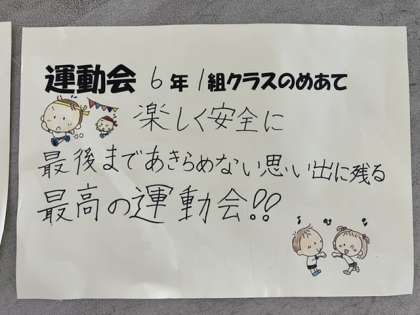 運動会 6年1組クラスのめあて
楽しく安全に
最後まであきらめない思い出に残る
最高の運動会!!